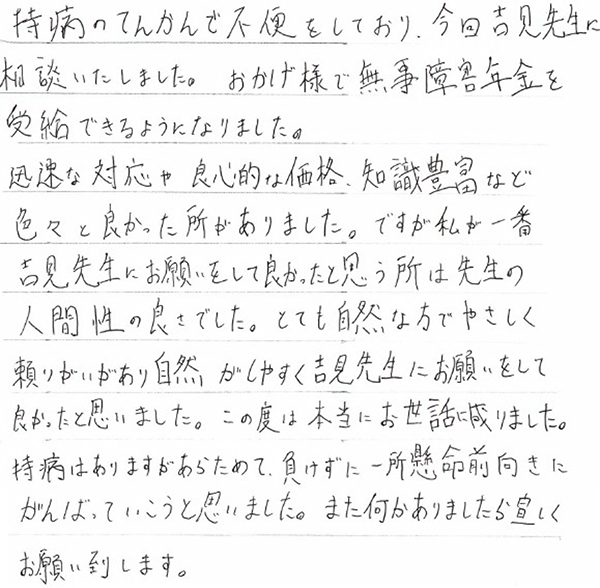 持病のてんかんで不便をしており、今回吉見先生に
相談いたしました。 おかげ様で無事障害年金を
受給できるようになりました。
迅速な対応や良心的な価格、知識豊富など
色々と良かった所がありました。ですが私が一番
吉見先生にお願いをして良かったと思う所は先生の
人間性の良さでした。とても自然な方でやさしく
頼りがいがあり自然がしやすく吉見先生にお願いをして
良かったと思いました。この度は本当にお世話に成りました。
持病はありますがあらためて、負けずに一所懸命前向きに
がんばっていこうと思いました。また何かありましたら宜しく
お願い到します。